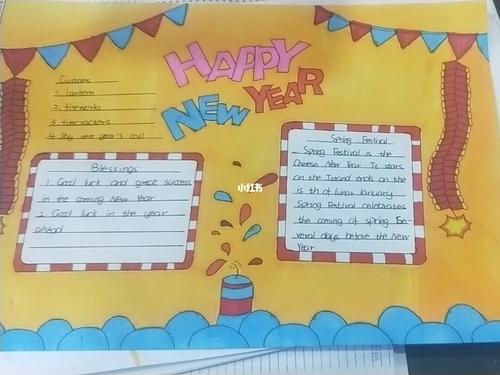 HAPPY
NEW YEAR
Customs
1. lantern
2. fireworks
3. firecrackers
4. Pay new year's call
Blessings
1. Good luck and great success
in the coming New Year.
2. Good luck in the year
ahead!
小红书
Spring Festival
Spring Festival is the
Chinese New Year. It stars
on the 1st and ends on the
15 th of lunar January.
Spring Festival celebrates
the coming of spring. Se-
veral days before the New
Year.